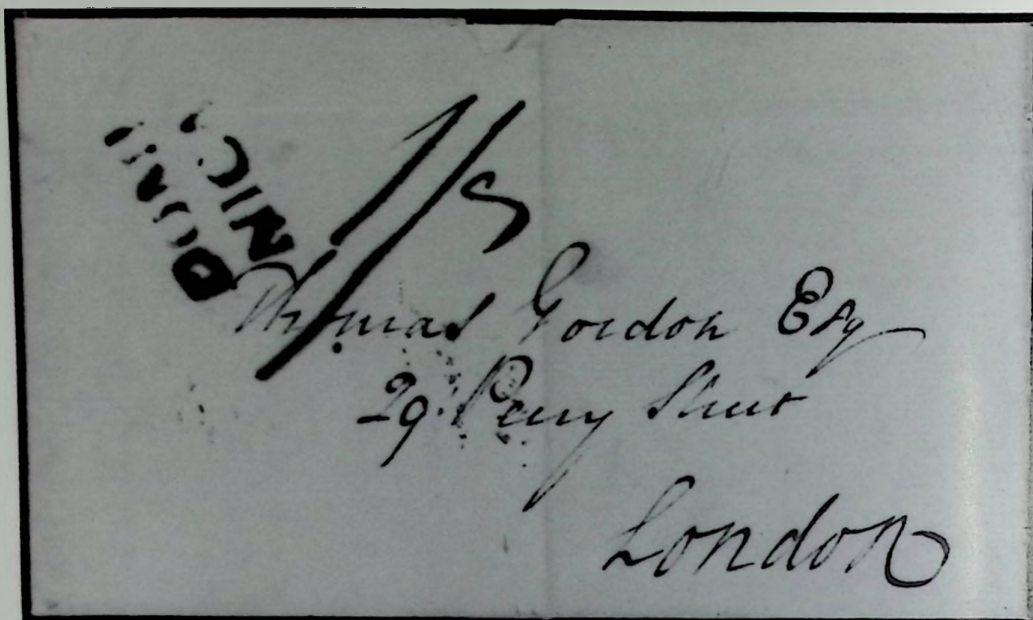 DOMI
NICA
1/5
Thomas Gordon Esq
29 Percy Street
London